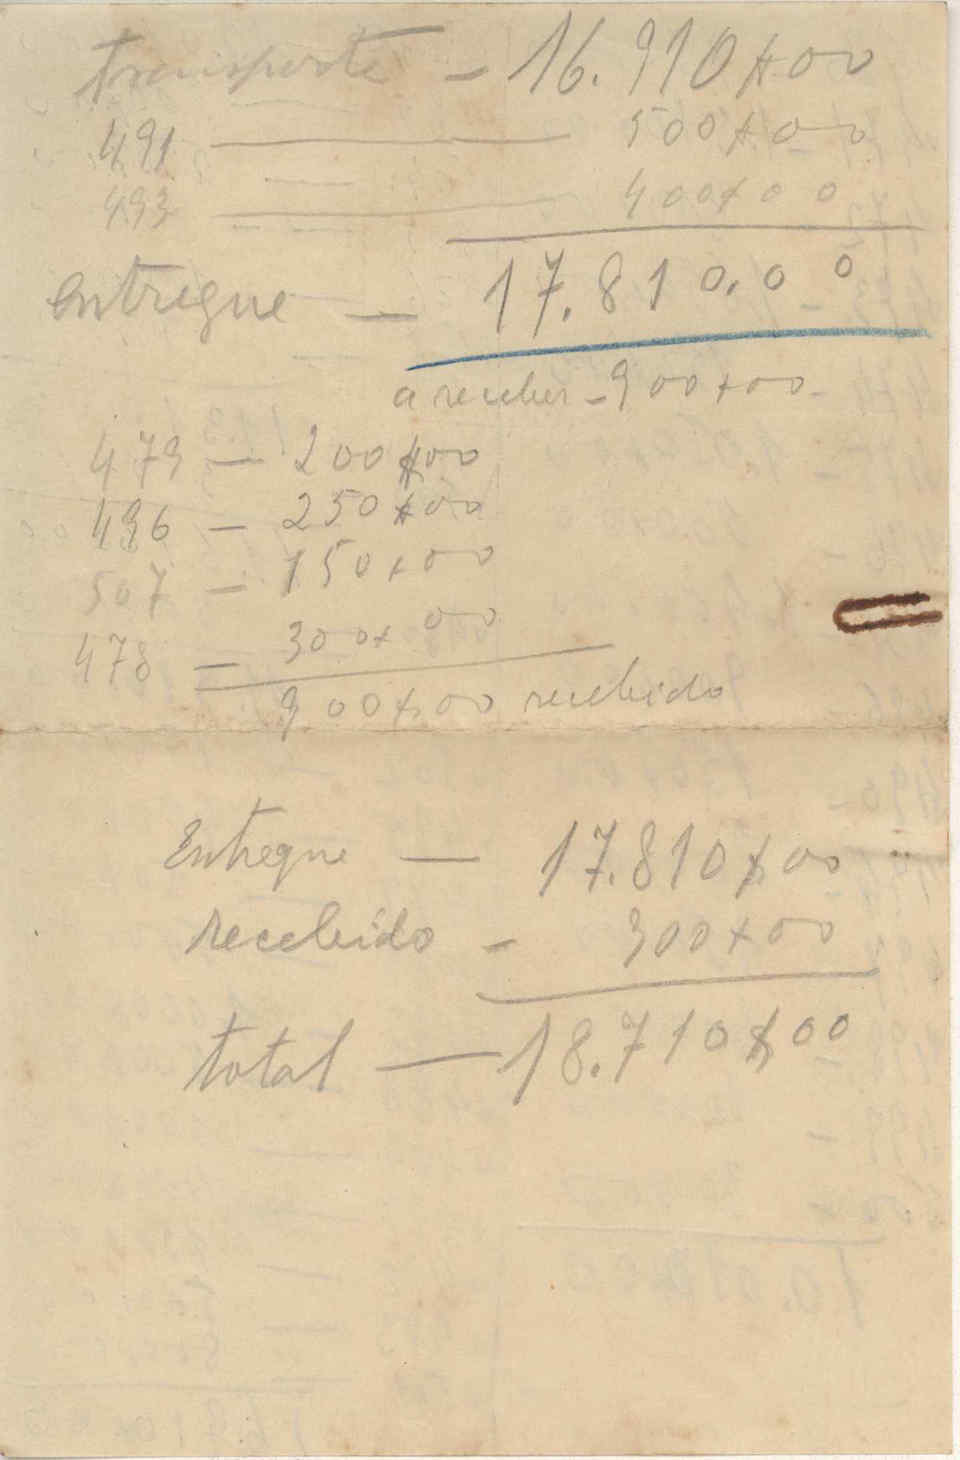 transporte - 16.910$00
491 — 500$00
493 — 400$00
entregue — 17.810.00
a receber - 900$00
479 — 200$00
496 — 250$00
507 — 150$00
478 — 300$00
900$00 recebido
Entregue — 17.810$00
recebido - 900$00
total — 18.710$00